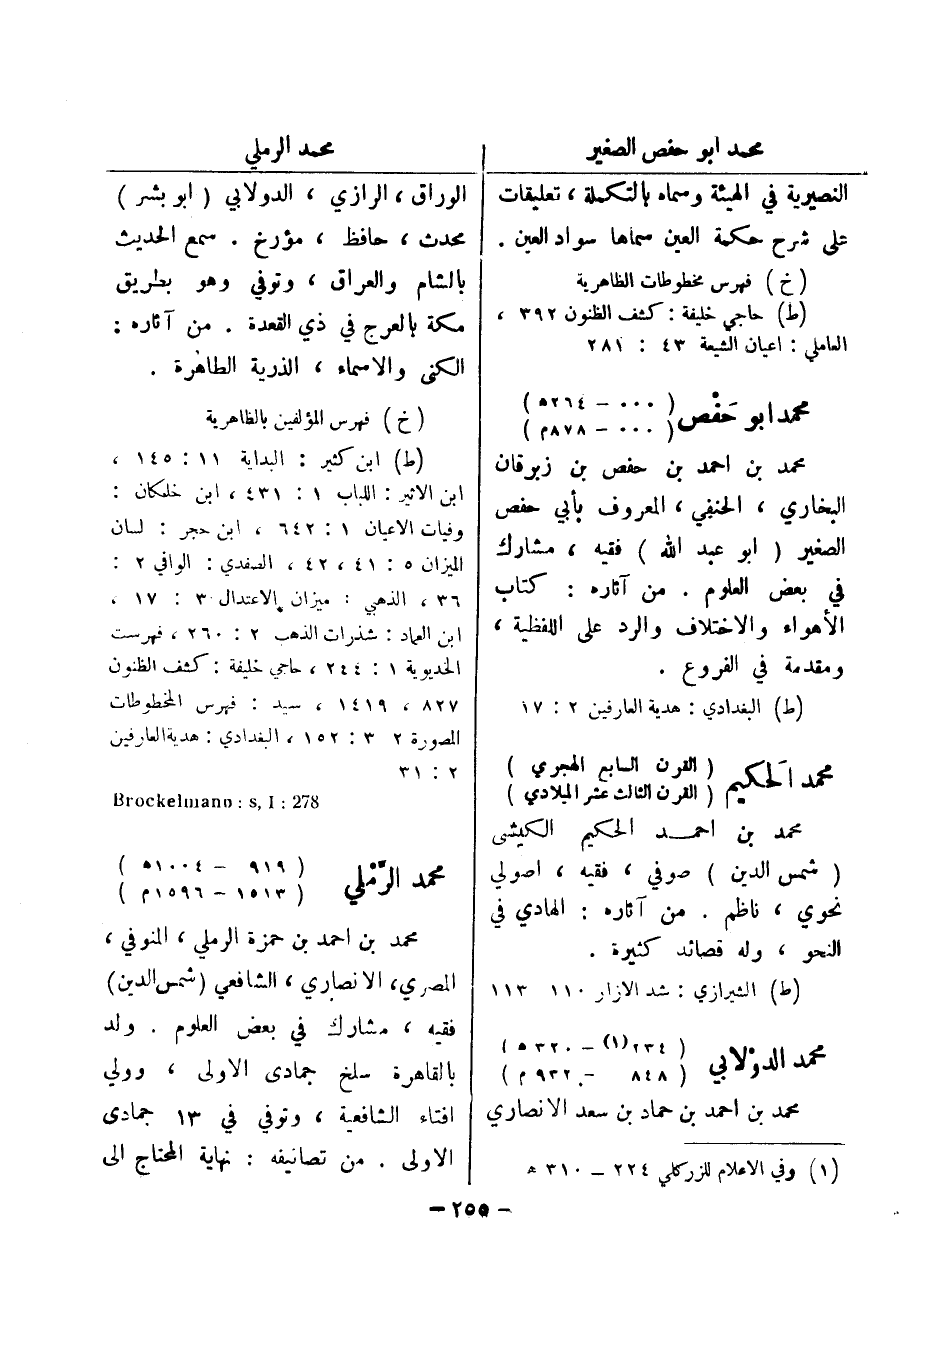 محمد ابو حفص الصغير
محمد الرملي
النصيرية في الهيئة وسماه بالتكملة ، تعليقات
على شرح حكمة العين سماها سواد العين .
( خ ) فهرس مخطوطات الظاهرية
(ط) حاجي خليفة : كشف الظنون ٣٩٢ ،
العاملي : اعيان الشيعة ٤٣ : ٢٨١
محمد ابو حَفْص ( ٠٠٠ – ٢٦٤ه )
( ٠٠٠ – ٨٧٨م )
محمد بن احمد بن حفص بن زبرقان
البخاري ، الحنفي ، المعروف بأبي حفص
الصغير ( ابو عبد الله ) فقيه ، مشارك
في بعض العلوم . من آثاره : كتاب
الأهواء والاختلاف والرد على اللفظية ،
ومقدمة في الفروع .
(ط) البغدادي : هدية العارفين ٢ : ١٧
محمد الحَكيم ( القرن السابع الهجري )
( القرن الثالث عشر الميلادي )
محمد بن احمد الحكيم الكيشى
( شمس الدين ) صوفي ، فقيه ، اصولي
نحوي ، ناظم . من آثاره : الهادي في
النحو ، وله قصائد كثيرة .
(ط) الشيرازي : شد الازار ١١٠ ١١٣
محمد الدوْلابي ( ٢٣٤(١) – ٣٢٠ه )
( ٨٤٨ – ٩٣٢م )
محمد بن احمد بن حماد بن سعد الانصاري
(١) وفي الاعلام للزركلي ٢٢٤ – ٣١٠ ه
الوراق ، الرازي ، الدولابي ( ابو بشر )
محدث ، حافظ ، مؤرخ . سمع الحديث
بالشام والعراق ، وتوفي وهو بطريق
مكة بالعرج في ذي القعدة . من آثاره :
الكنى والاسماء ، الذرية الطاهرة .
( خ ) فهرس المؤلفين بالظاهرية
(ط) ابن كثير : البداية ١١ : ١٤٥ ،
ابن الاثير : اللباب ١ : ٤٣١ ، ابن خلكان :
وفيات الاعيان ١ : ٦٤٢ ، ابن حجر : لسان
الميزان ٥ : ٤١ ، ٤٢ ، الصفدي : الوافي ٢ :
٣٦ ، الذهبي : ميزان الاعتدال ٣ : ١٧ ،
ابن العماد : شذرات الذهب ٢ : ٢٦٠ ، فهرست
الخديوية ١ : ٢٤٤ ، حاجي خليفة : كشف الظنون
٨٢٧ ، ١٤١٩ ، سيد : فهرس المخطوطات
المصورة ٢ ٣ : ١٥٢ ، البغدادي : هدية العارفين
٢ : ٣١
Brockelmann : s, I : 278
محمد الرَّمْلي ( ٩١٩ – ١٠٠٤ه )
( ١٥١٣ – ١٥٩٦م )
محمد بن احمد بن حمزة الرملي ، المنوفي ،
المصري ، الانصاري ، الشافعي (شمس الدين)
فقيه ، مشارك في بعض العلوم . ولد
بالقاهرة سلخ جمادى الاولى ، وولي
افتاء الشافعية ، وتوفي في ١٣ جمادى
الاولى . من تصانيفه : نهاية المحتاج الى
– ٢٥٥ –